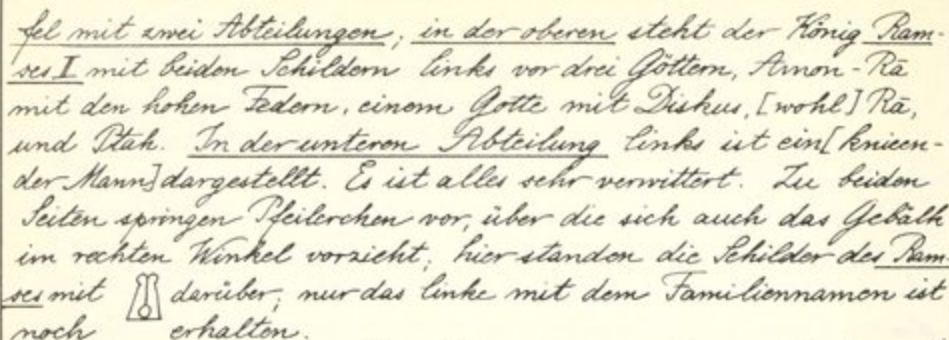 fel mit zwei Abteilungen; in der oberen steht der König Ram-
ses I mit beiden Schildern links vor drei Göttern, Amon-Rā
mit den hohen Federn, einem Gotte mit Diskus, [wohl] Rā,
und Ptah. In der unteren Abteilung links ist ein[knieen-
der Mann]dargestellt. Es ist alles sehr verwittert. Zu beiden
Seiten springen Pfeilerchen vor, über die sich auch das Gebälk
im rechten Winkel vorzieht; hier standen die Schilder des Ram-
ses mit darüber; nur das linke mit dem Familiennamen ist
noch erhalten.